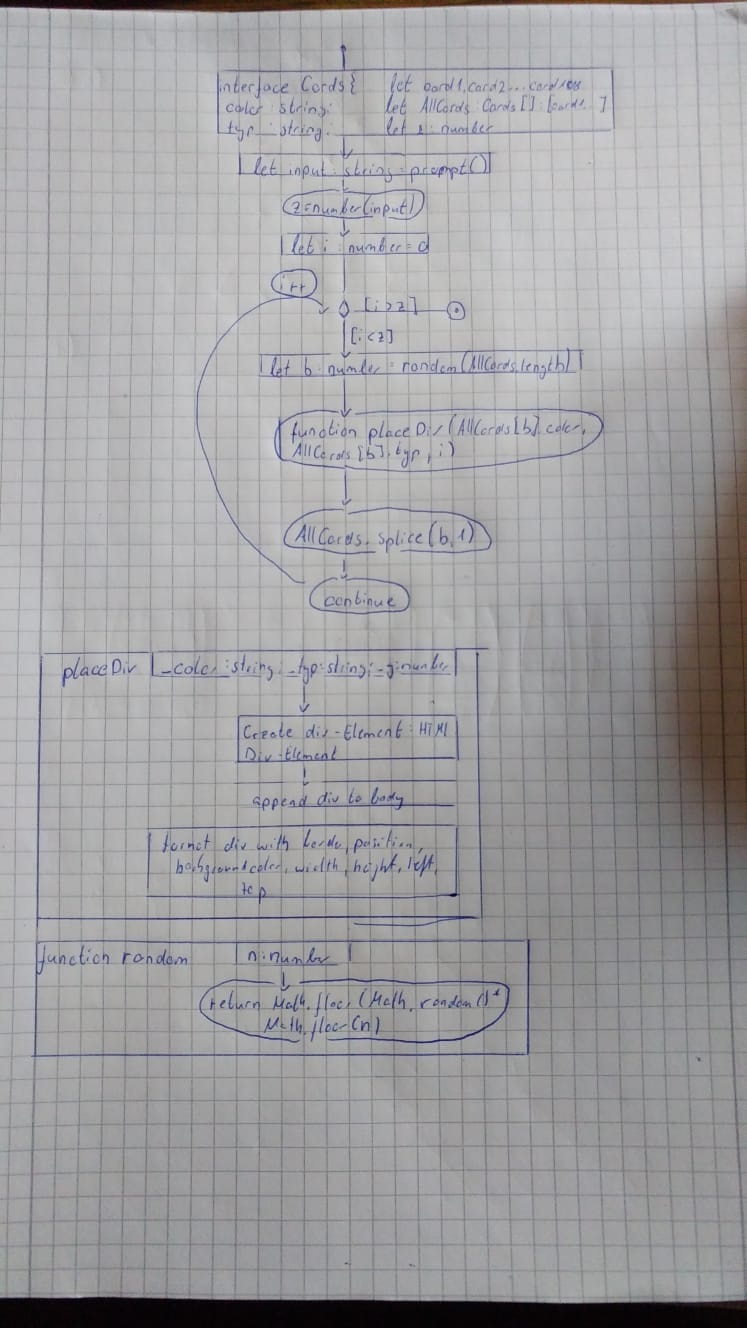 interface Cards{ let card1, card2 ... card108
color : string; let AllCards : Cards [] : [card1 ]
typ : string; let z : number
let input : string = prompt()
z = number (input)
let i : number = 0
i++
[i > z]
[i < z]
let b : number = random (AllCards.length)
function placeDiv (AllCards [b]. color,
AllCards [b]. typ, i)
AllCards. splice (b, 1)
continue
placeDiv _color : string; _typ : string; _z : number
Create div-Element : HTMl
Div-Element
append div to body
format div with border, position,
backgroundcolor, width, height, left,
top
function random n : number
return Math. floor (Math. random () *
Math. floor (n)